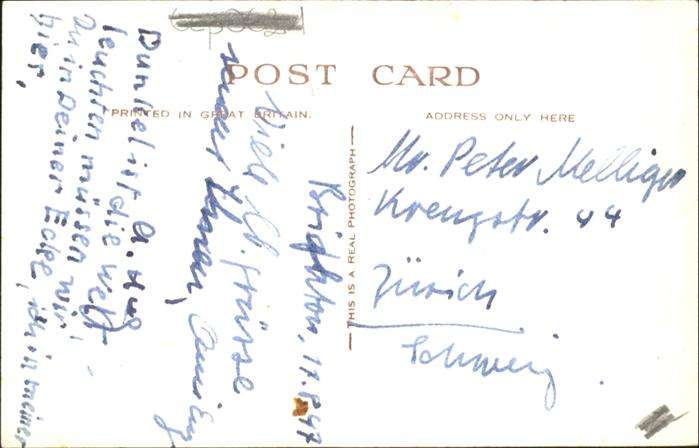 POST CARD
PRINTED IN GREAT BRITAIN.
ADDRESS ONLY HERE
THIS IS A REAL PHOTOGRAPH
Mr. Peter Melliger
Kreuzstr. 44
Zürich
Schweiz
Brighton, 17.8.47
Viele lb. Grüsse
sendet Ihnen,
A. Hug
Dunkel ist die Welt
leuchten müssen wir!
Du in Deiner Ecke, ich in meiner
hier,